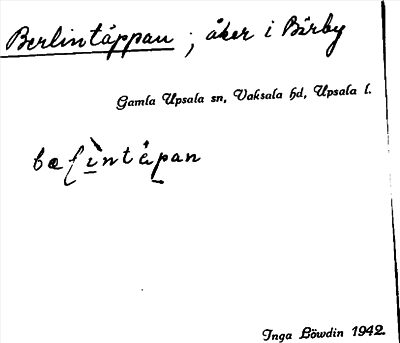 Berlintäppan ; åker i Bärby
Gamla Upsala sn, Vaksala hd, Upsala l.
Inga Löwdin 1942.